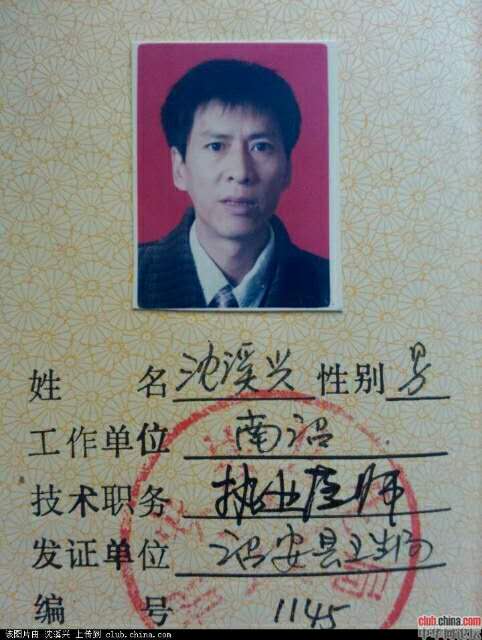 姓 名 沈溪兴 性别 男
工作单位 南沼
技术职务 执业医师
发证单位 诏安县卫生局
编 号 1145
club.china.com
该图片由 沈溪兴 上传到 club.china.com